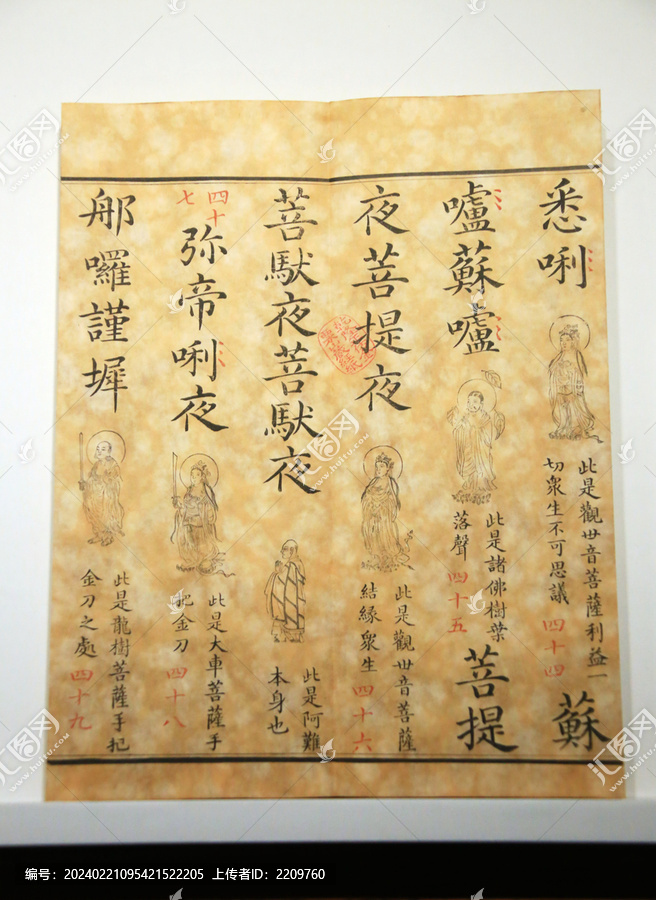 悉唎
此是觀世音菩薩利益一
切眾生不可思議 四十四
蘇
嚧蘇嚧
此是諸佛樹葉
落聲 四十五
菩提
夜菩提夜
此是觀世音菩薩
結緣眾生 四十六
菩馱夜菩馱夜
此是阿難
本身也
四十
七
弥帝唎夜
此是大車菩薩手
把金刀 四十八
那囉謹墀
此是龍樹菩薩手把
金刀之處 四十九
编号：20240221095421522205 上传者ID：2209760
汇图网
www.huitu.com